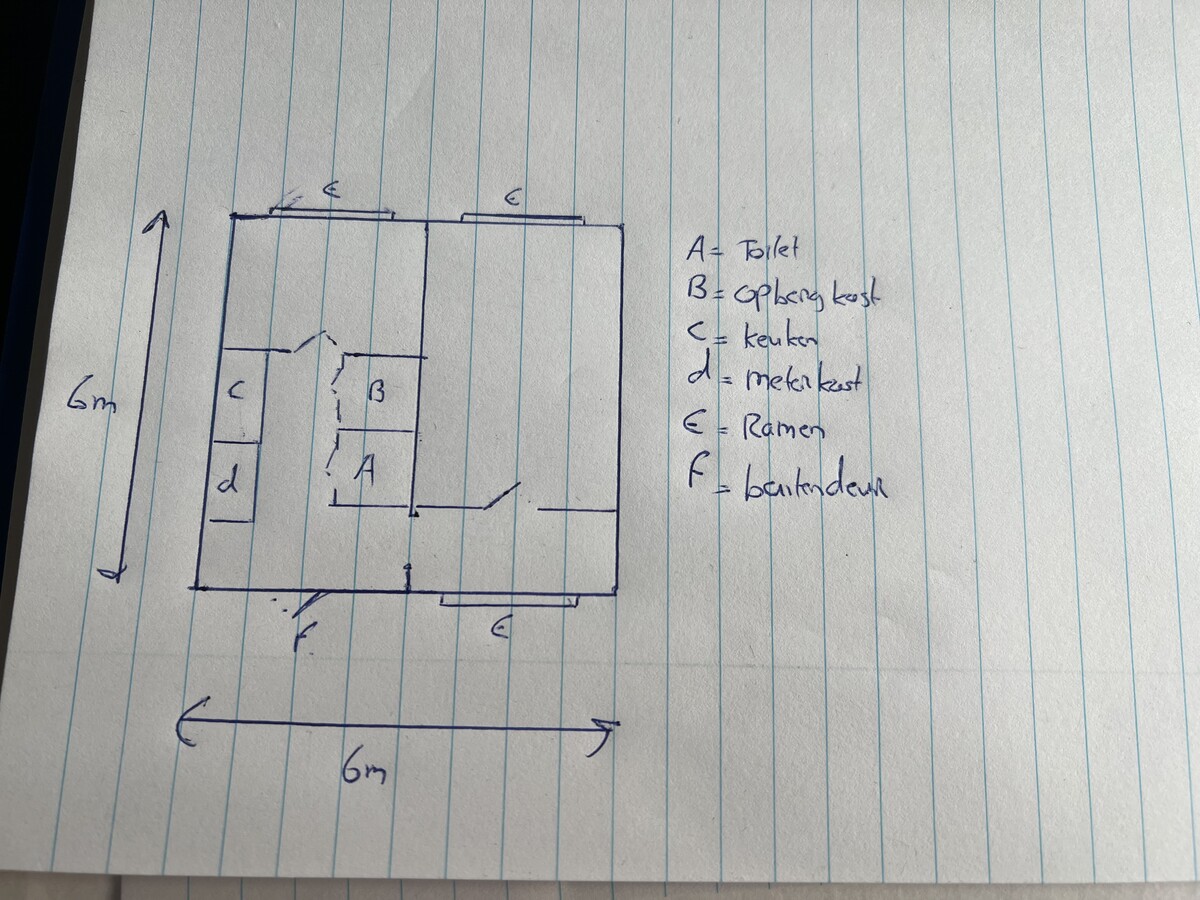 E
E
A = Toilet
B = opberg kast
C = keuken
d = meterkast
E = Ramen
F = buitendeur
6m
C
B
d
A
F
E
6m